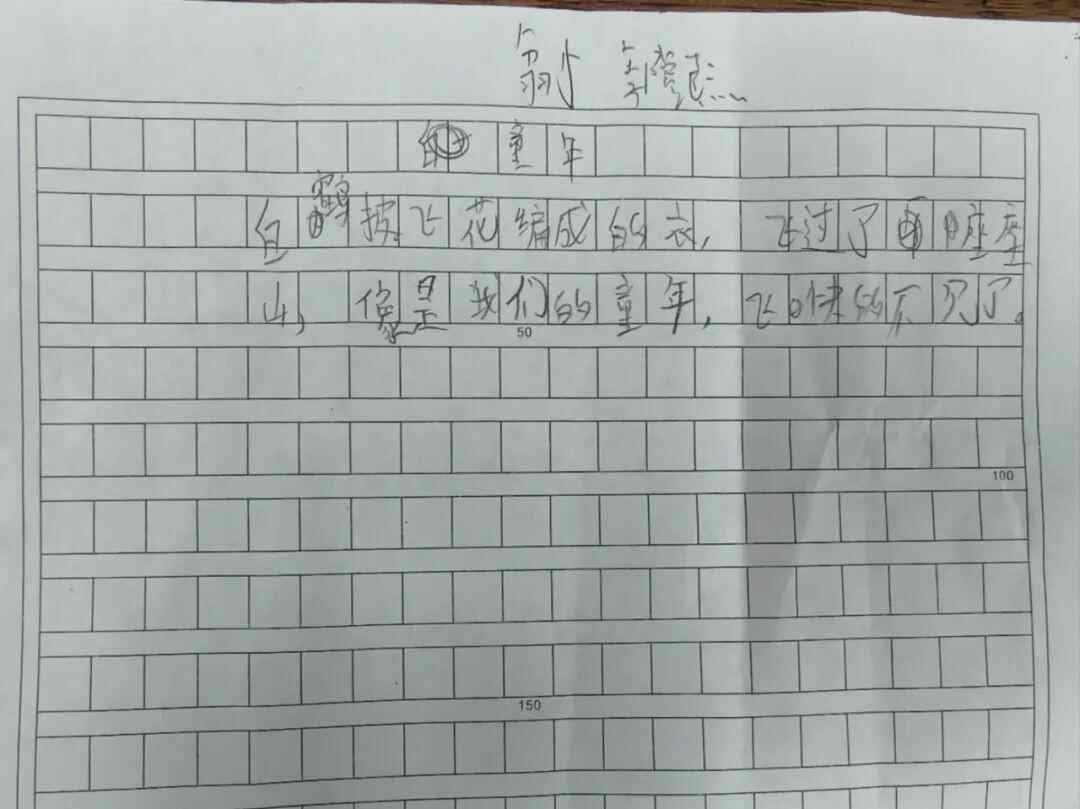 童年
白鹤披飞花编成的衣，飞过了座座
山，像是我们的童年，飞快的不见了。
50
100
150